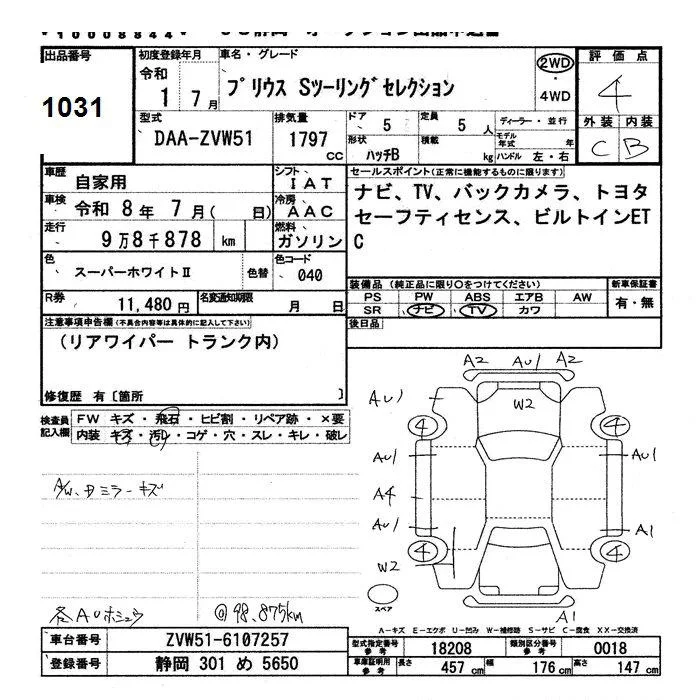 10008844
出品番号 初度登録年月 車名・グレード 評価点
令和
1 7月 プリウス Sツーリングセレクション 2WD 4WD 4
1031
外装 内装
C B
型式 排気量 ドア 5 定員 5人 ディーラー・並行
DAA-ZVW51 1797 CC 形状 ハッチB 積載 kg モデル年式 年
ハンドル 左・右
車歴 自家用 シフト IAT セールスポイント(正常に機能するものに限ります)
車検 令和 8年 7月( 日) 冷房 AAC ナビ、TV、バックカメラ、トヨタ
走行 9万8千878 km 燃料 ガソリン セーフティセンス、ビルトインET
C
色 スーパーホワイトⅡ 色替 色コード 040
装備品(純正品に限り○をつけてください) 新車保証書
PS PW ABS エアB AW 有・無
SR ナビ TV カワ
R券 11,480円 名変通知期限 月 日
後日品
注意事項申告欄(不具合内容等は具体的に記入して下さい)
(リアワイパー トランク内)
修復歴 有〔箇所 〕
検査員記入欄 FW キズ・飛石・ヒビ割・リペア跡・×要
内装 キズ・汚レ・コゲ・穴・スレ・キレ・破レ
A2 AU1 A2
AU1 W2
4 4
AU1 AU1
A4
AU1 A1
4 4
W2
A1
スペア
A/W、ミラーキズ
各AUホシュウ @98,875km
A-キズ E-エクボ U-凹み W-補修跡 S-サビ C-腐食 XX-交換済
車台番号 ZVW51-6107257
登録番号 静岡 301 め 5650
型式指定番号 参考 18208 類別区分番号 参考 0018
車庫証明用 参考 長さ 457cm 幅 176cm 高さ 147cm